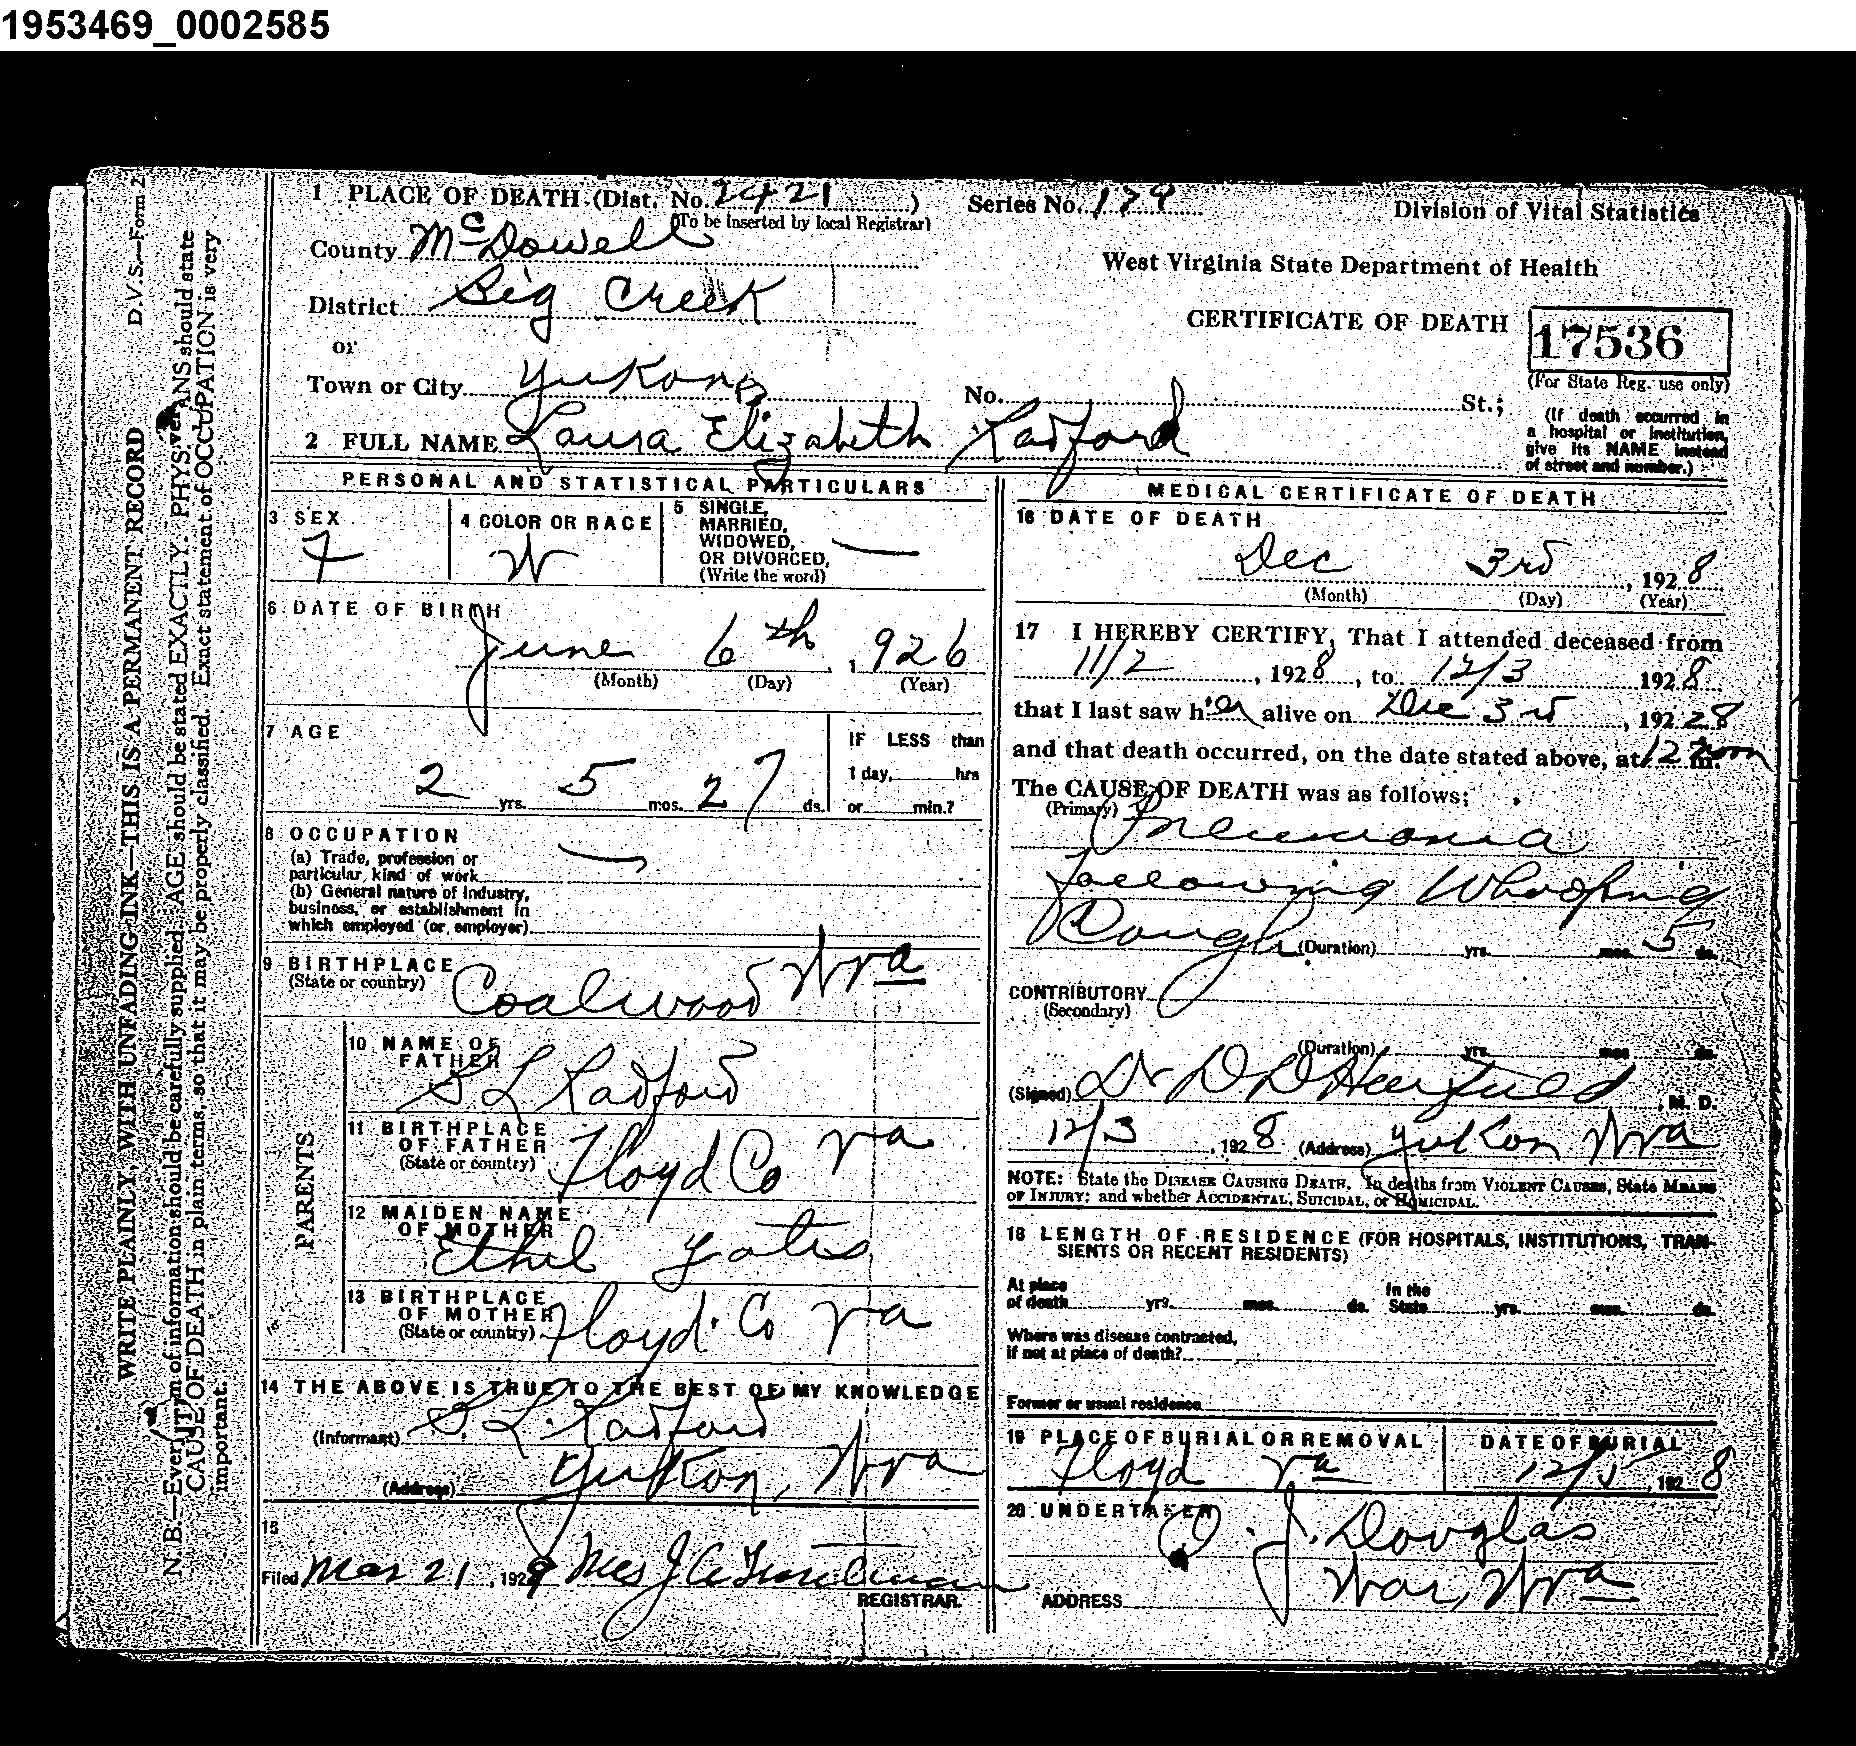 1953469_0002585
D.V.S.—Form 2
WRITE PLAINLY, WITH UNFADING INK—THIS IS A PERMANENT RECORD
N. B.—Every item of information should be carefully supplied. AGE should be stated EXACTLY. PHYSICIANS should state
CAUSE OF DEATH in plain terms, so that it may be properly classified. Exact statement of OCCUPATION is very
important.
1 PLACE OF DEATH (Dist. No. 2421) Series No. 179 Division of Vital Statistics
(To be inserted by local Registrar)
County McDowell
West Virginia State Department of Health
District Big Creek
CERTIFICATE OF DEATH 17536
or
(For State Reg. use only)
Town or City Yukon No. St.;
(If death occurred in
a hospital or institution,
give its NAME instead
of street and number.)
2 FULL NAME Laura Elizabeth Radford
PERSONAL AND STATISTICAL PARTICULARS
3 SEX
F
4 COLOR OR RACE
W
5 SINGLE,
MARRIED,
WIDOWED,
OR DIVORCED,
(Write the word)
6 DATE OF BIRTH
June 6th, 1926
(Month) (Day) (Year)
7 AGE
2 yrs. 5 mos. 27 ds.
IF LESS than
1 day, hrs
or min.?
8 OCCUPATION
(a) Trade, profession or
particular, kind of work
(b) General nature of industry,
business, or establishment in
which employed (or employer)
9 BIRTHPLACE
(State or country) Coalwood Wva
PARENTS
10 NAME OF
FATHER
S L Radford
11 BIRTHPLACE
OF FATHER
(State or country) Floyd Co Va
12 MAIDEN NAME
OF MOTHER
Ethel Yates
13 BIRTHPLACE
OF MOTHER
(State or country) Floyd Co Va
14 THE ABOVE IS TRUE TO THE BEST OF MY KNOWLEDGE
(Informant) S. L. Radford
(Address) Yukon, Wva
15
Filed Mar 21, 1929 Mrs J C
REGISTRAR.
MEDICAL CERTIFICATE OF DEATH
16 DATE OF DEATH
Dec 3rd, 1928
(Month) (Day) (Year)
17 I HEREBY CERTIFY, That I attended deceased from
11/2, 1928, to 12/3 1928
that I last saw her alive on Dec 3rd, 19228
and that death occurred, on the date stated above, at 12 noon m.
The CAUSE OF DEATH was as follows:
(Primary)
Pneumonia
following Whooping
Cough (Duration) yrs. mos. 5 ds.
CONTRIBUTORY
(Secondary)
(Duration) yrs. mos. ds.
(Signed) Dr D D Hatfield, M. D.
12/3, 1928 (Address) Yukon Wva
NOTE: State the DISEASE CAUSING DEATH. In deaths from VIOLENT CAUSES, State MEANS
OF INJURY; and whether ACCIDENTAL, SUICIDAL, or HOMICIDAL.
18 LENGTH OF RESIDENCE (FOR HOSPITALS, INSTITUTIONS, TRAN-
SIENTS OR RECENT RESIDENTS)
At place In the
of death yrs. mos. ds. State yrs. mos. ds.
Where was disease contracted,
if not at place of death?
Former or usual residence
19 PLACE OF BURIAL OR REMOVAL
Floyd Va
DATE OF BURIAL
12/5, 1928
20 UNDERTAKER
O. J. Douglas
ADDRESS War, Wva